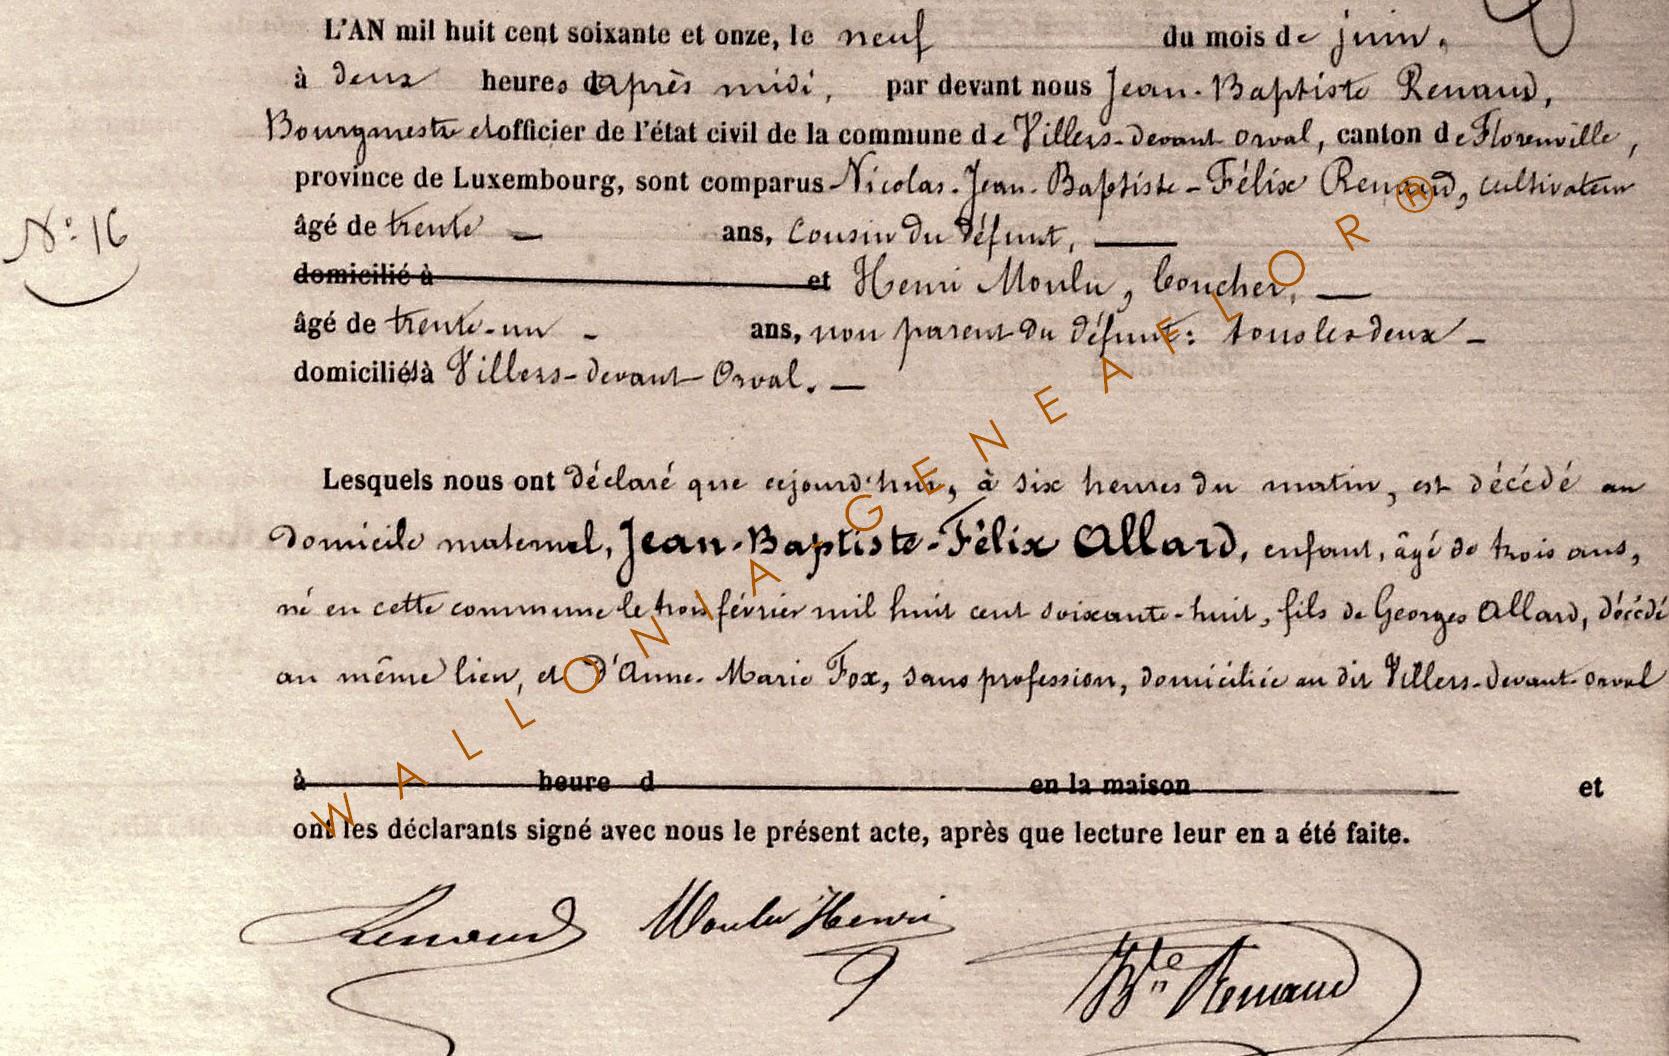 L'AN mil huit cent soixante et onze, le neuf du mois de juin,
à deux heures d'après midi, par devant nous Jean-Baptiste Renaud,
Bourgmestre et officier de l'état civil de la commune de Villers-devant orval, canton de Florenville,
province de Luxembourg, sont comparus Nicolas-Jean-Baptiste-Félix Renaud, cultivateur
N° 16
âgé de trente — ans, cousin du défunt, —
domicilié à et Henri Moulu, —
âgé de trente-un - ans, non parent du défunt: tous les deux -
domiciliés à Villers-devant-Orval. —
Lesquels nous ont déclaré que cejourd'hui, à six heures du matin, est décédé au
domicile maternel, Jean-Baptiste-Félix Allard, enfant, âgé de trois ans,
né en cette commune le trois février mil huit cent soixante-huit, fils de Georges Allard, décédé
au même lieu, et d'Anne-Marie Fox, sans profession, domiciliée au dit Villers-devant-orval
à heure d en la maison et
ont les déclarants signé avec nous le présent acte, après que lecture leur en a été faite.
Renaud Moulu Henri
Renaud
WALLONIA GENEAFLOR ®